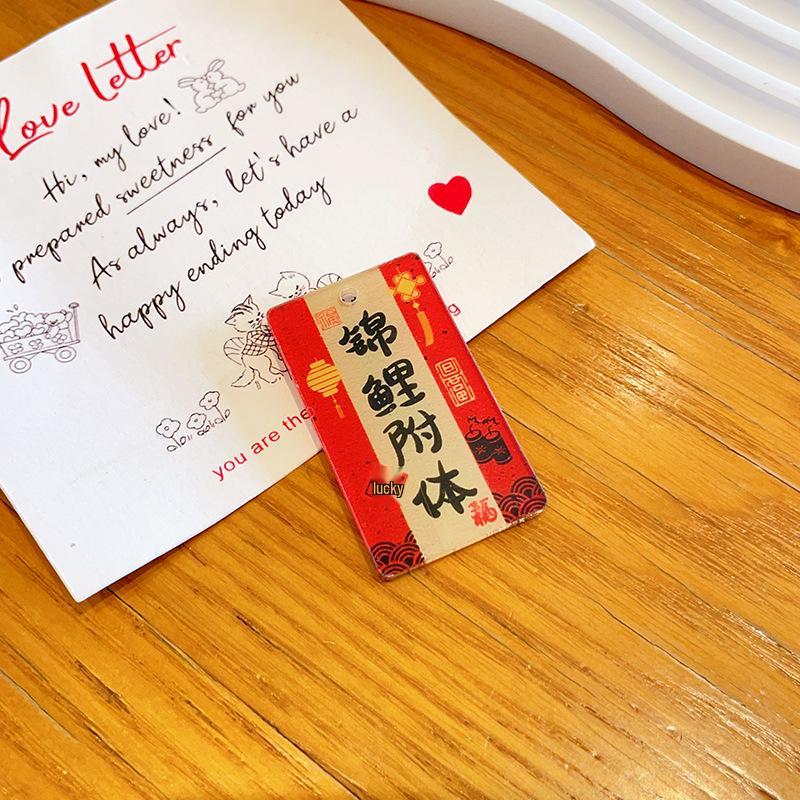 Love Letter
Hi, my love!
prepared sweetness for you
As always, let's have a
happy ending today
you are the
g
福
锦鲤附体
lucky
福